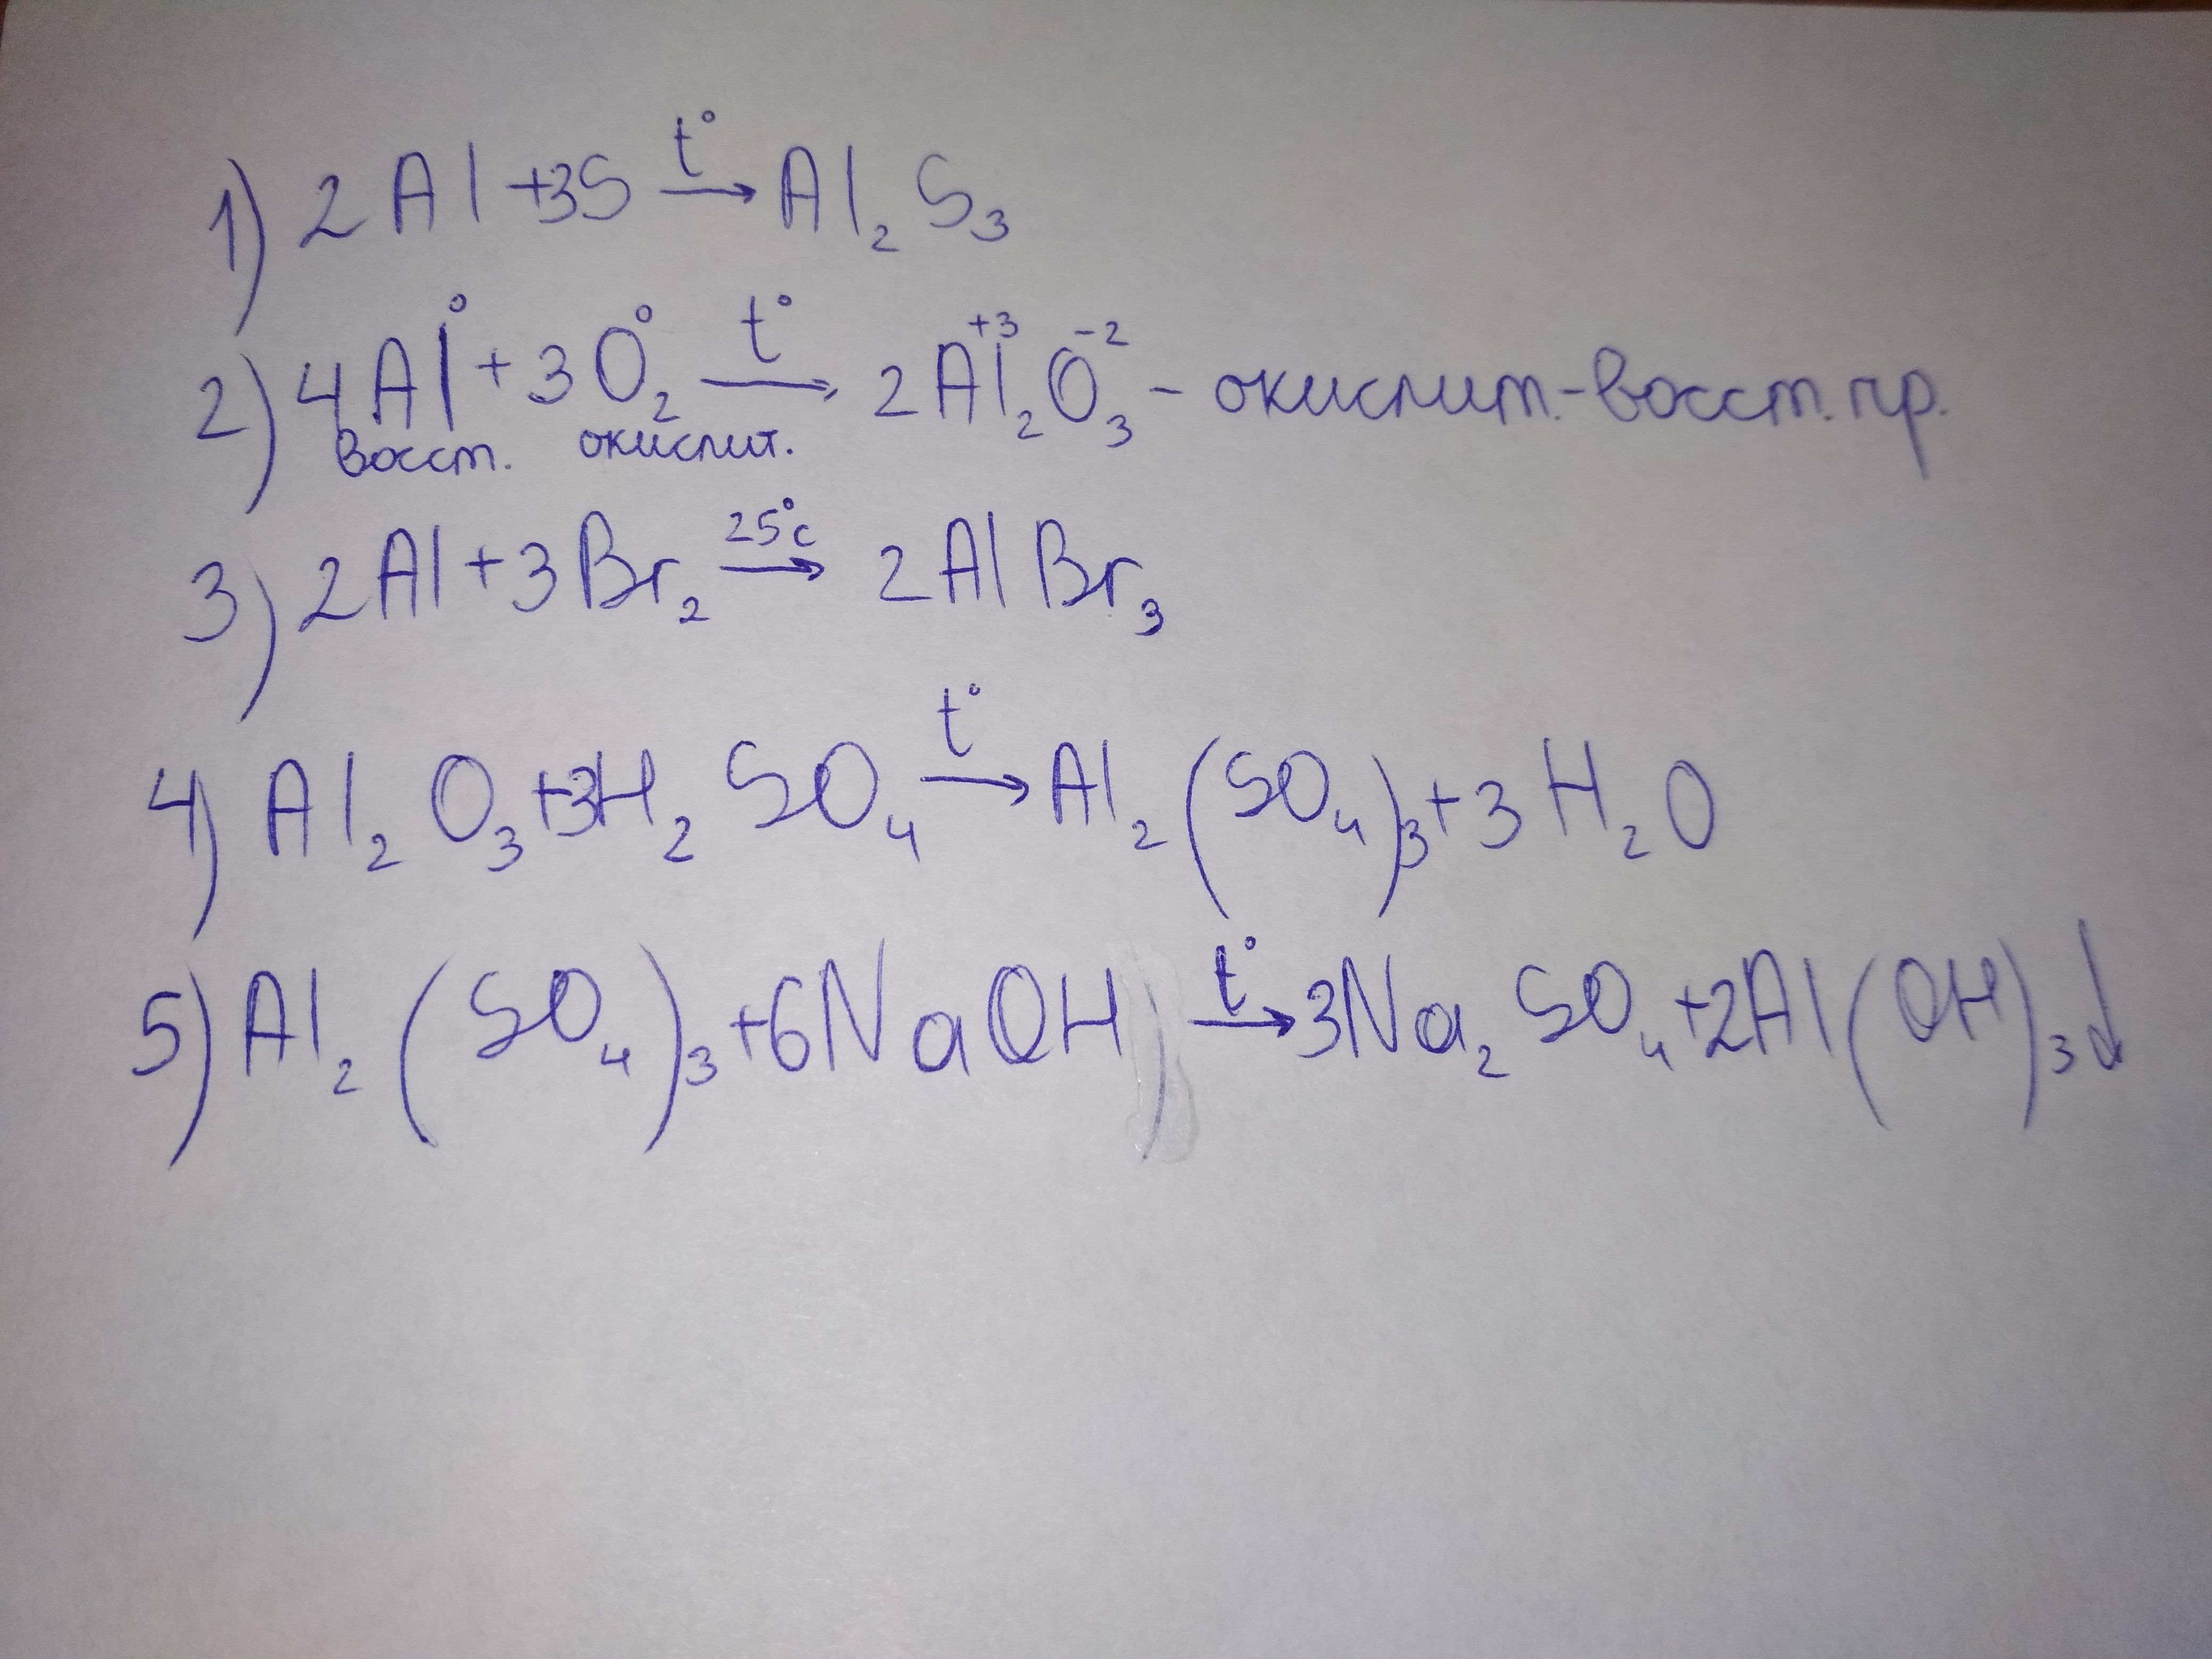 1) 2Al +3S t° → Al₂S₃
2) 4Al⁰ + 3O₂⁰ t° → 2Al₂⁺³O₃⁻² - окислит.-восст. пр.
восст. окислит.
3) 2Al + 3Br₂ 25°c → 2AlBr₃
4) Al₂O₃ +3H₂SO₄ t° → Al₂(SO₄)₃ + 3H₂O
5) Al₂(SO₄)₃ +6NaOH) t° → 3Na₂SO₄ +2Al(OH)₃↓